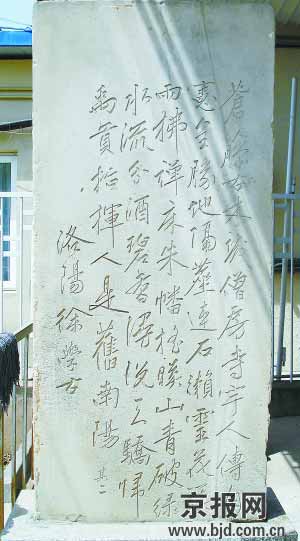 蒼藤古木僧房寺宇人傳
勝地隔塵連石瀨靈花
雨拂禪床朱幡搖山青破綠
水流分酒碧香潭說天驕歸
禹貢指揮人是舊南陽 其二
洛陽徐學古
京报网
www.bjd.com.cn